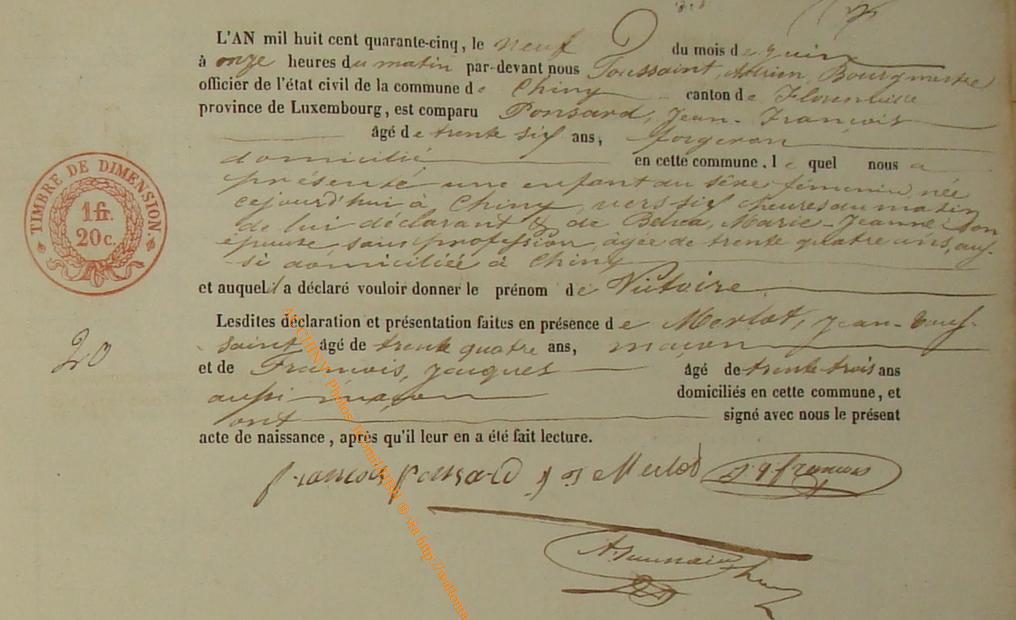 L'AN mil huit cent quarante-cinq, le neuf du mois de juin
à onze heures du matin par-devant nous Toussaint, Adrien, Bourgmestre
officier de l'état civil de la commune de Chiny canton de Florenville
province de Luxembourg, est comparu Ponsard, Jean-François
âgé de trente six ans, forgeron
domicilié en cette commune, le quel nous a
présenté une enfant du sexe féminin, née
cejourd'hui à Chiny, vers six heures du matin
de lui déclarant & de Marie-Jeanne son
épouse, sans profession, âgée de trente quatre ans, aus-
si domiciliée à Chiny
et auquel il a déclaré vouloir donner le prénom de Victoire
Lesdites déclaration et présentation faites en présence de Merlot, Jean-Tous-
saint âgé de trente quatre ans, maçon
et de François, Jacques âgé de trente trois ans
aussi maçon domiciliés en cette commune, et
ont signé avec nous le présent
acte de naissance, après qu'il leur en a été fait lecture.
françois ponsard J Merlot J J françois
A Toussaint
TIMBRE DE DIMENSION
1 fr.
20 c.
20